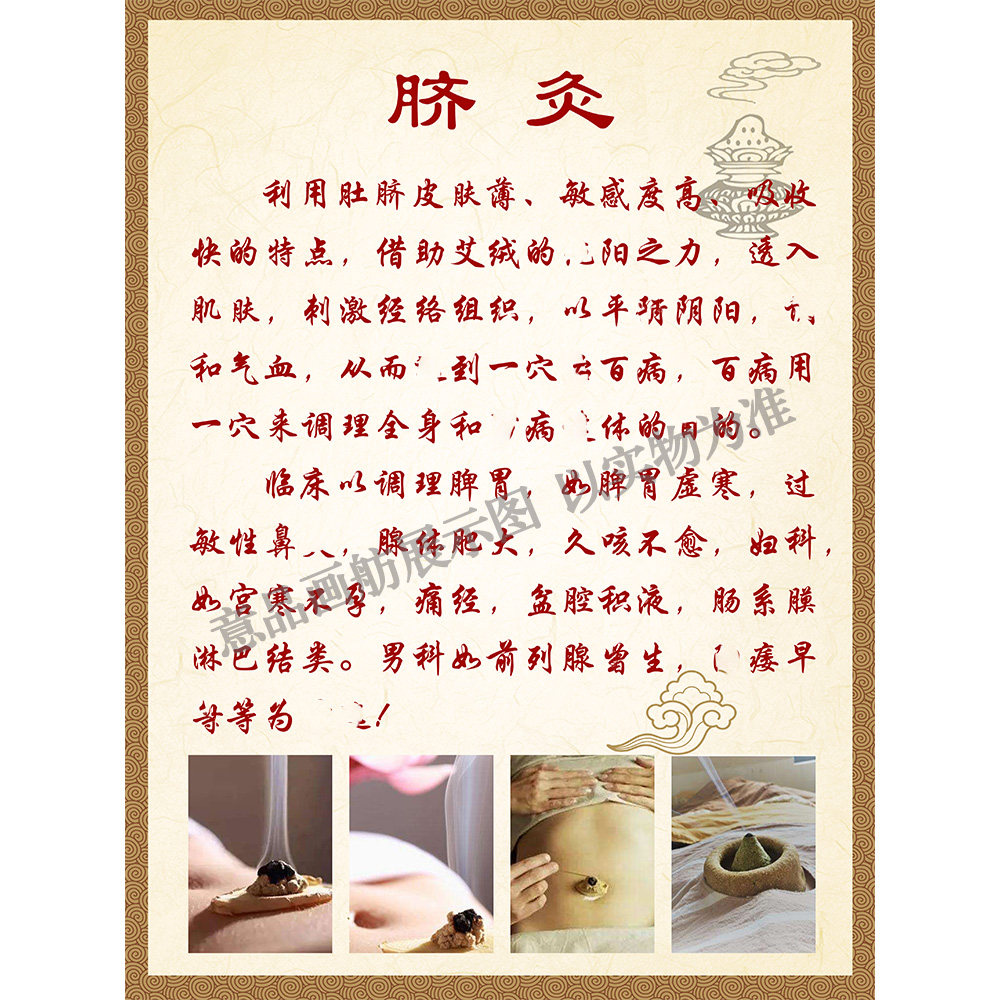 脐灸
利用肚脐皮肤薄、敏感度高、吸收
快的特点，借助艾绒的阳之力，透入
肌肤，刺激经络组织，以平阴阳，
和气血，从而到一穴百病，百病用
一穴来调理全身和病体的目的。
临床以调理脾胃，如脾胃虚寒，过
敏性鼻，腺体肥大，久咳不愈，妇科，
如宫寒不孕，痛经，盆腔积液，肠系膜
淋巴结类。男科如前列腺曾生，痿早
等为！
意品画舫展示图 以实物为准